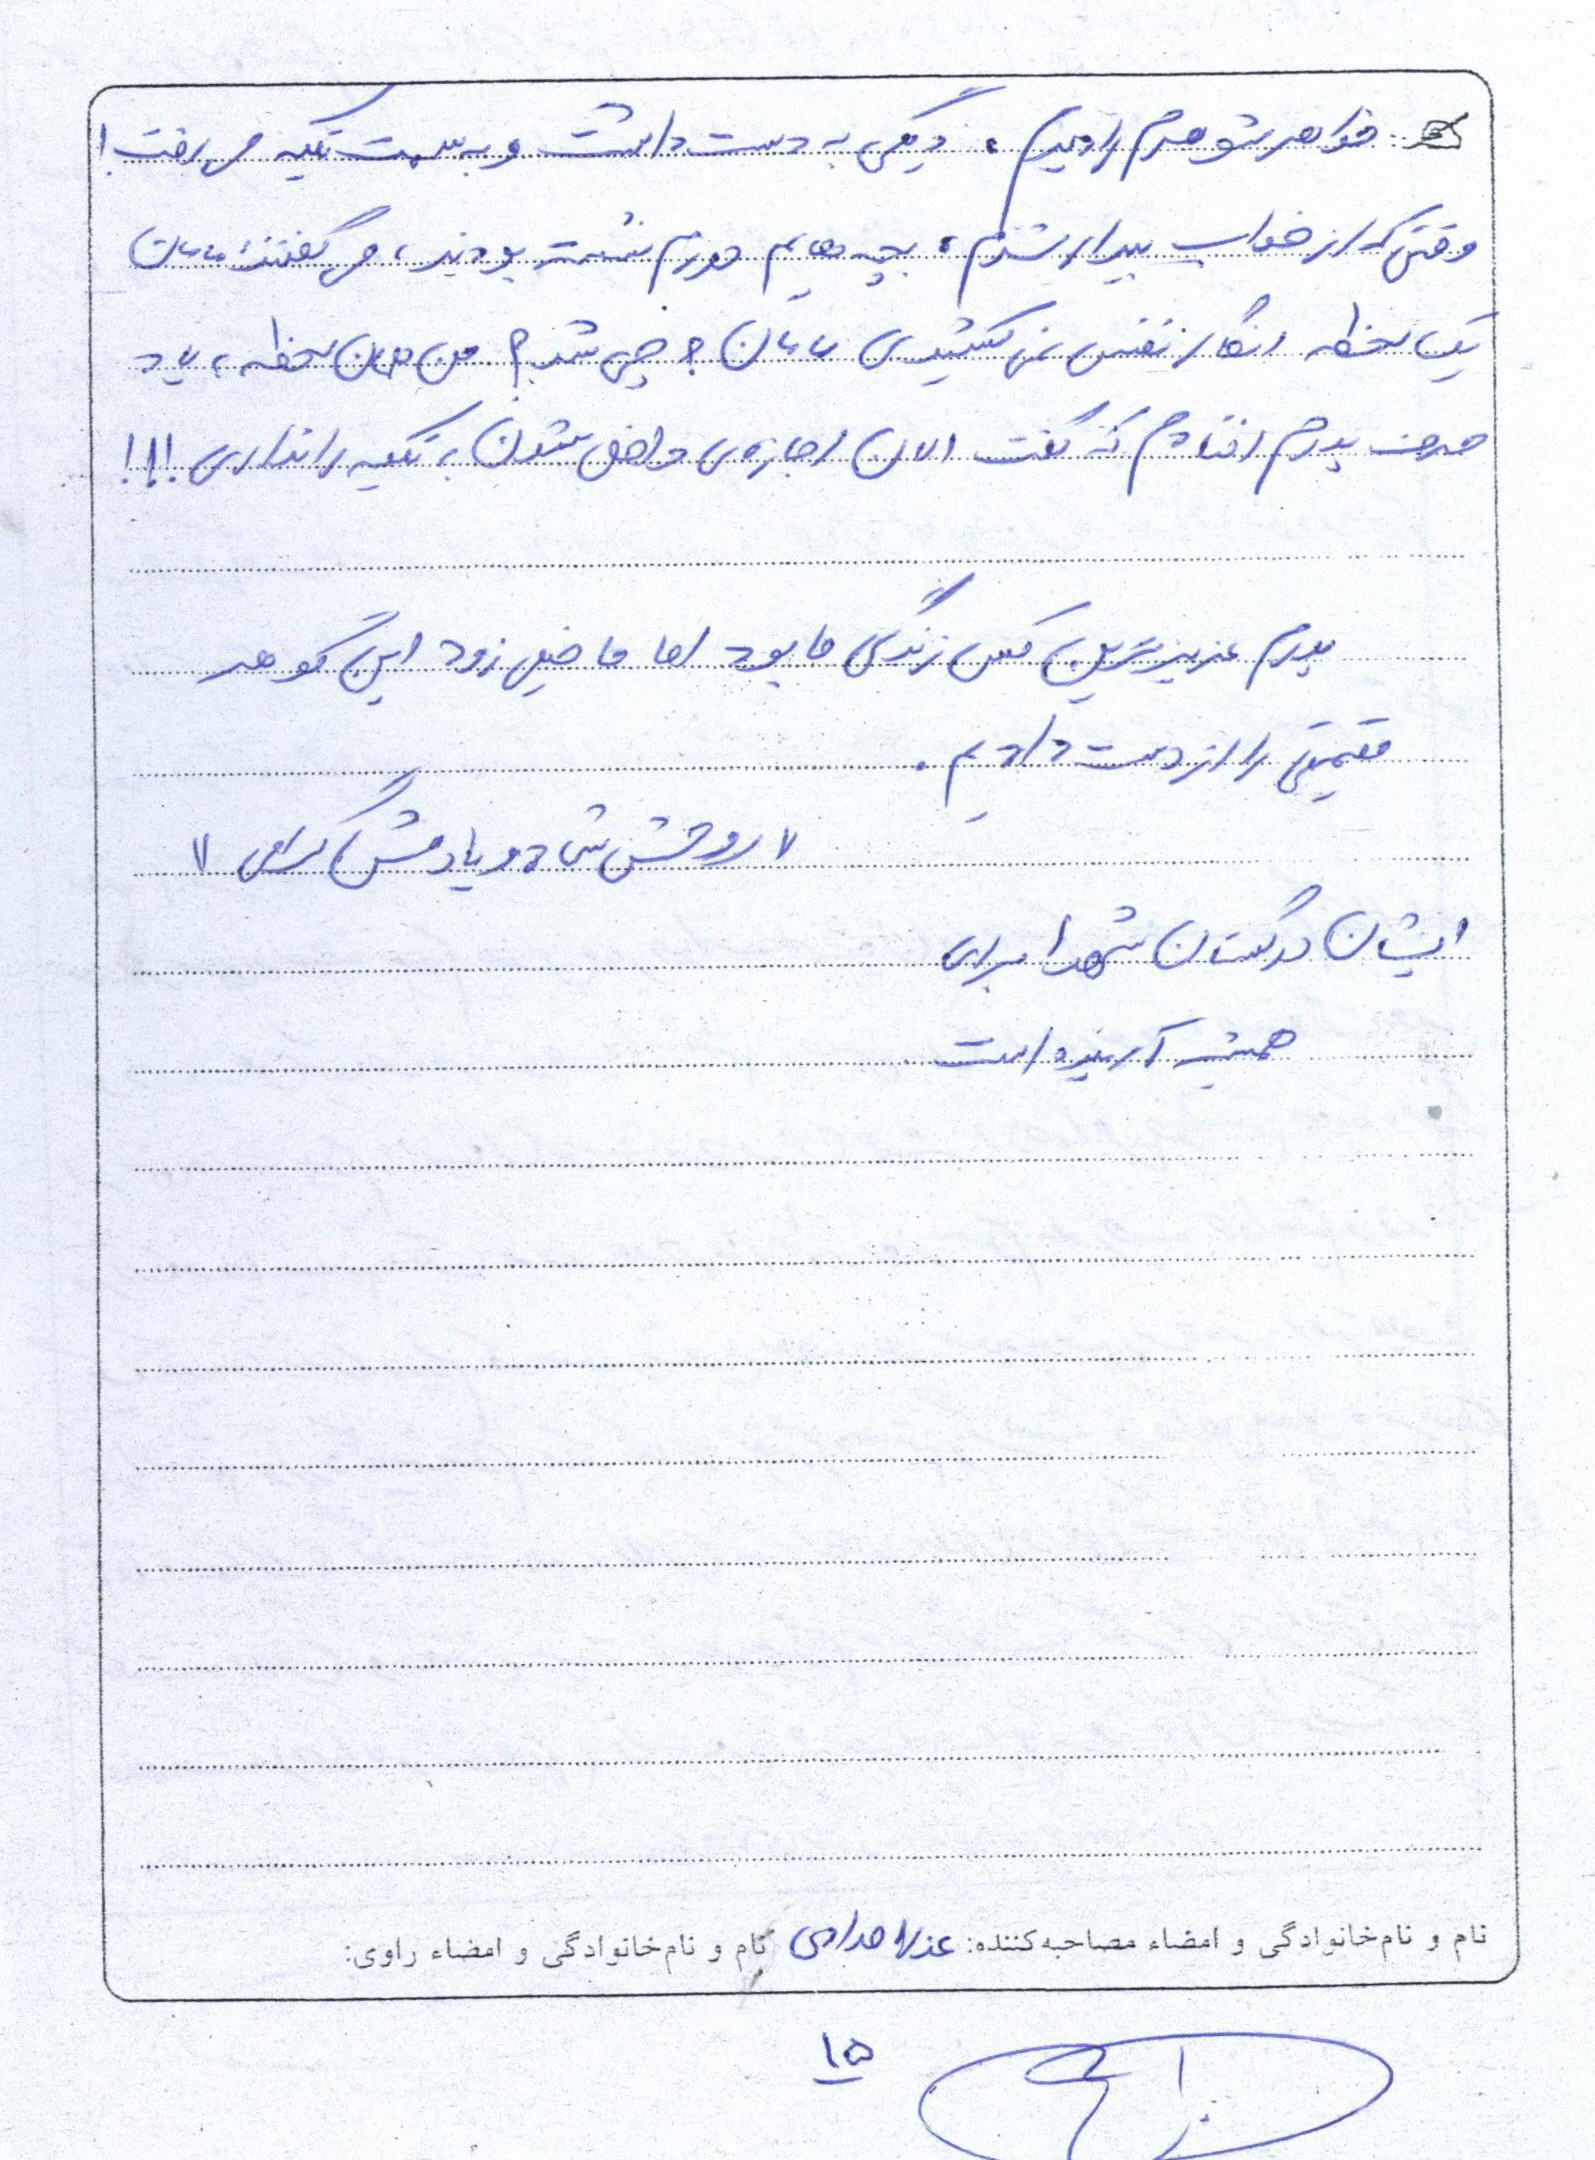 خواهر شوهرم را دیدم، دیگی به دست داشت و به سمت تکیه می رفت!
وقتی که از خواب بیدار شدم، بچه هایم دورم نشسته بودند، می گفتند: مامان
یک لحظه انگار نفس نمی کشیدی مامان؟ چی شد؟ من همان لحظه، یاد
حرف پدرم افتادم که گفت الان اجازه ی داخل شدن به تکیه را نداری!!!
پدرم عزیزترین کس زندگی ما بود اما ما خیلی زود این گوهر
قیمتی را از دست دادیم.
"روحش شاد و یادش گرامی"
ایشان در گلستان شهدا برای
همیشه آرمیده است
نام و نام‌خانوادگی و امضاء مصاحبه‌کننده: عذرا مرادی نام و نام‌خانوادگی و امضاء راوی:
۱۵